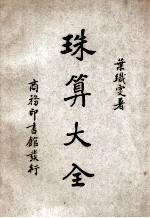 葉𨯳雯著
珠算大全
商務印書館發行